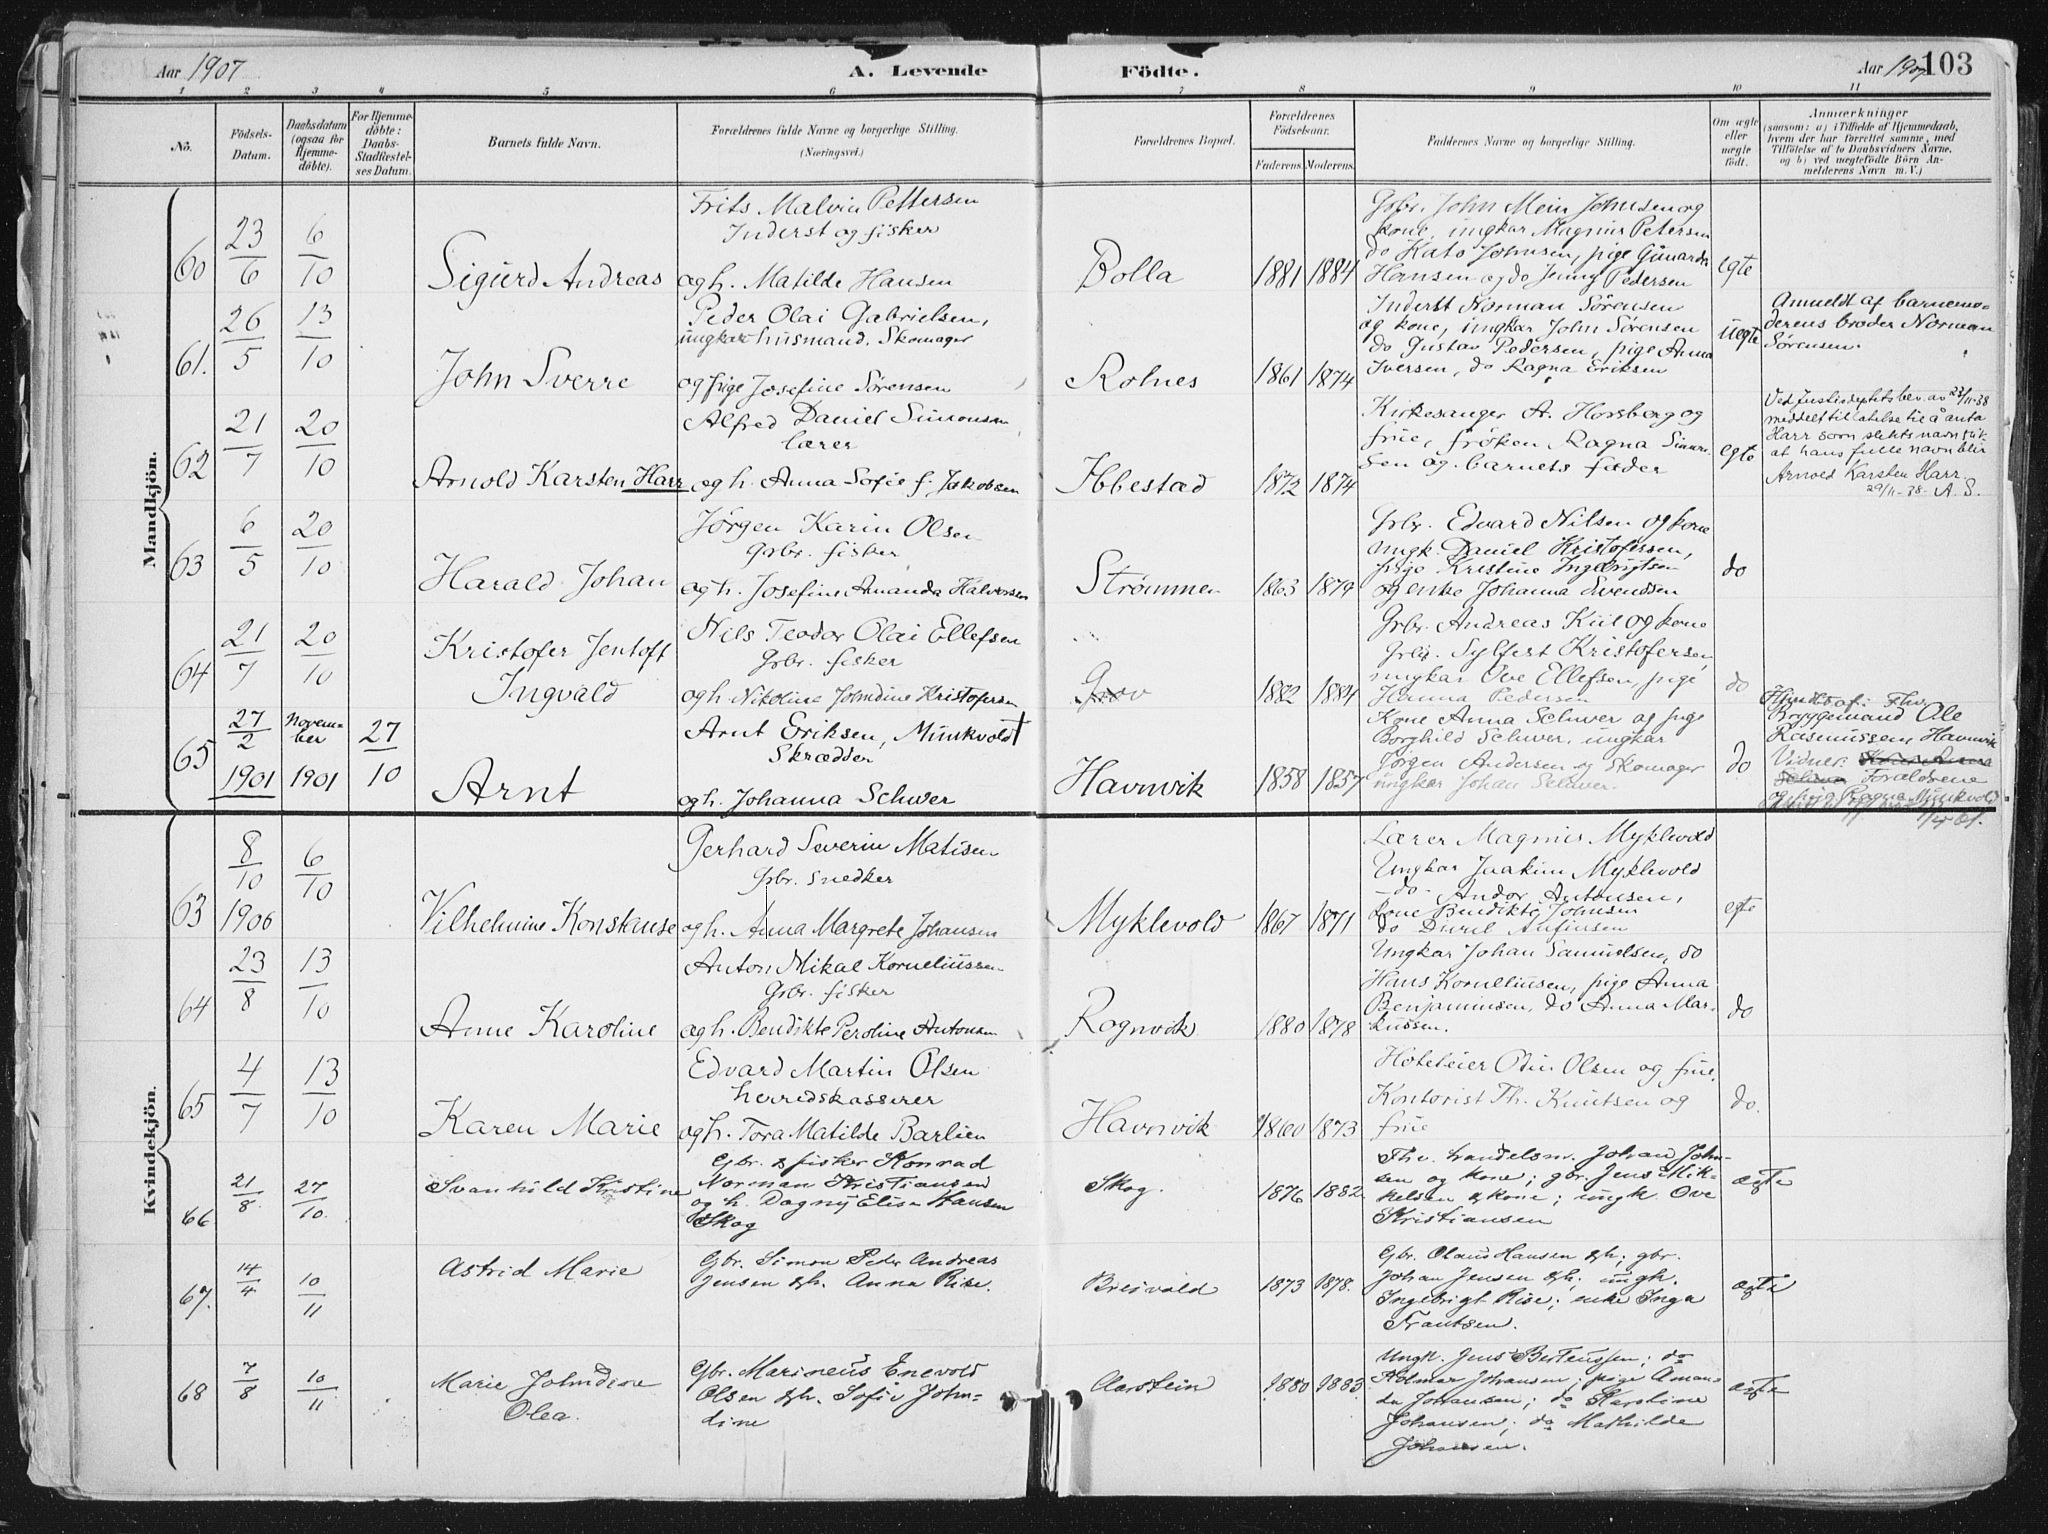 Aar 1907
A. Levende
Födte.
Aar 1907 103
1 2 3 4 5 6 7 8 9 10 11
No.
Födsels-
Datum.
Daabsdatum
(ogsaa for
Hjemme-
döbte).
For Hjemme-
döbte:
Daabs-
Stadfæstel-
ses Datum.
Barnets fulde Navn.
Forældrenes fulde Navne og borgerlige Stilling.
(Næringsvei.)
Forældrenes Bopæl.
Forældrenes
Födselsaar.
Faderens. Moderens.
Faddernes Navne og borgerlige Stilling.
Om ægte
eller
uægte
födt.
Anmærkninger
(saasom: a) i Tilfælde af Hjemmedaab,
hvem der har forrettet samme, med
Tilföielse af to Daabsvidners Navne,
og b) ved uægtefödte Börn An-
melderens Navn m. V.)
Mandkjön.
60
23/6
6/10
Sigurd Andreas
Frits Malvin Pettersen
Inderst og fisker
og h. Matilde Hansen
Bolla
1881 1884
Grbr. John Mein Johnsen og
kone, ungkar Magnus Petersen
do Kato Johnsen, pige Gunarda
Hansen og do Jenny Pedersen
egte
61.
26/5
13/10
John Sverre
Peder Olai Gabrielsen,
ungkar husmand, Skomager
og pige Josefine Sørensen
Rolnes
1861 1874
Inderst Norman Sørensen
og kone, ungkar John Sørensen
do Gustav Pedersen, pige Anna
Iversen, do Ragna Eriksen
uegte
Anmeldt af barnemo-
derens broder Norman
Sørensen.
62
21/7
20/10
Arnold Karsten Harr
Alfred Daniel Simonsen
lærer
og h. Anna Sofie f. Jakobsen
Ibbestad
1872 1874
Kirkesanger A. Horsborg og
frue, frøken Ragna Simon-
sen og barnets fader
egte
Ved Justisdeptets bev. av 22/11-38
meddelt tillatelse til å anta
Harr som slektsnavn slik
at hans fulle navn blir
Arnold Karsten Harr
29/11-38 A. S.
63
6/5
20/10
Harald Johan
Jørgen Karin Olsen
Grbr. fisker
og h. Josefine Amanda Halvorsen
Strømmen
1863 1879
Grbr. Edvard Nilsen og kone
ungk. Daniel Kristofersen,
pige Kristine Ingebrigtsen
og enke Johanna Svendsen
do
64
21/7
20/10
Kristofer Jentoft
Ingvald
Nils Teodor Olai Ellefsen
Grbr. fisker
og h. Nikoline Johndine Kristofersen
Grov
1882 1884
Grbr. Andreas Kiil og kone
Grbr. Sylfest Kristofersen,
ungkar Ove Ellefsen, pige
Hanna Pedersen
do
65
27/2
1901
Novem-
ber
1901
27/10
Arnt
Arnt Eriksen, Munkvold †
Skrædder
og h. Johanna Schwer
Havnvik
1858 1857
Kone Anna Schwer og pige
Borghild Schwer, ungkar
Jørgen Andersen og Skomager
ungkar Johan Schwer.
do
Hjmdbt af: Fhv.
Bryggemand Ole
Rasmussen Havnvik
Vidner: Kone Anna
Forældrene
og pige Ragna Munkvold
Kvindekjön.
63
8/10
1906
6/10
Vilhelmine Konstanse
Gerhard Severin Matisen
Grbr. snedker
og h. Anna Margrete Johansen
Myklevold
1867 1871
Lærer Magnus Myklevold
Ungkar Joakim Myklevold
do Andor Antonsen,
Kone Bendikte Johnsen
do Anfinsen
egte
64
23/8
13/10
Anne Karoline
Anton Mikal Korneliussen
Grbr. fisker
og h. Bendikte Peroline Antonsen
Rognvik
1880 1878
Ungkar Johan Samuelsen, do
Hans Korneliusen, pige Anna
Benjaminsen, do Anna Mar-
kussen.
do
65
4/7
13/10
Karen Marie
Edvard Martin Olsen
herredskasserer
og h. Tora Matilde Barlien
Havnvik
1860 1873
Hoteleier Odin Olsen og frue,
Kontorist Th. Knutsen og
frue
do.
66
21/8.
27/10.
Svanhild Kristine
Gbr. & fisker Konrad
Norman Kristiansen
og h. Dagny Elise Hansen
Skog
Skog.
1876 1882
Fhv. handelsm. Johan John-
sen og kone; gbr. Jens Mik-
kelsen & kone; ungk. Ove
Kristiansen
ægte
67.
14/4
10/11
Astrid Marie
Gbr. Simon Peter Andreas
Jensen & h. Anna Rise.
Breivold
1873 1878.
Gbr. Olaus Hansen & h; gbr.
Johan Jensen & h; ungk.
Ingebrigt Rise; enke Inga
Frantsen.
ægte
68
7/8
10/11
Marie Johndine
Olea.
Gbr. Marineus Enevold
Olsen & h. Sofie John-
dine
Aarstein
1880 1883
Ungk. Jens Berteussen; do
Kolmar Johansen; pige Aman-
da Johansen; do Karstine
Johansen; do Mathilde
Johansen.
ægte